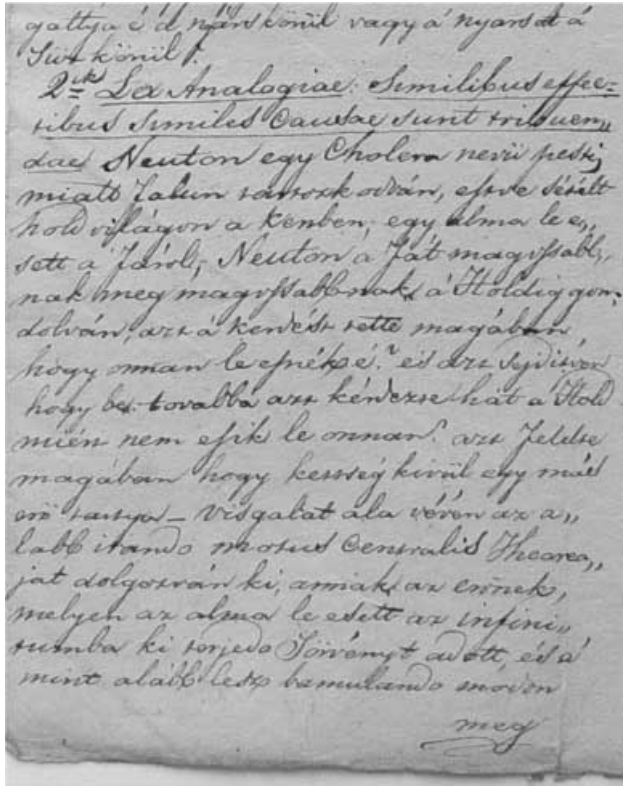 gattya é d nárskönül vagy á nyarsat á
Tüz körül?
2ik Lex Analogiae: Similibus effec=
tibus Similes Causae sunt tribuen„
dae Neuton egy Cholera nevü pestis
miatt falun tartozkodván, estve sétált
hold világon a kertben, egy alma le e„
sett a fárol, Neuton a fát magossabb„
nak meg magossabbnak á Holdig gon„
dolván, azt á kérdést tette magában
hogy onnan le esnék é? és azt sejditvén
hogy be. tovabba azt kérdezte hát á Hold
miért nem esik le onnan? azt felelte
magában hogy kettség kivül egy más
erö tartya – visgalat ala vévén az a„
labb irando motus Centralis Theorea„
ját dolgozván ki, annak az erönek,
melyen az alma le esett az infini„
tumba ki terjedo Törvényt adott, és á
mint alább lesz bamulando modon
meg